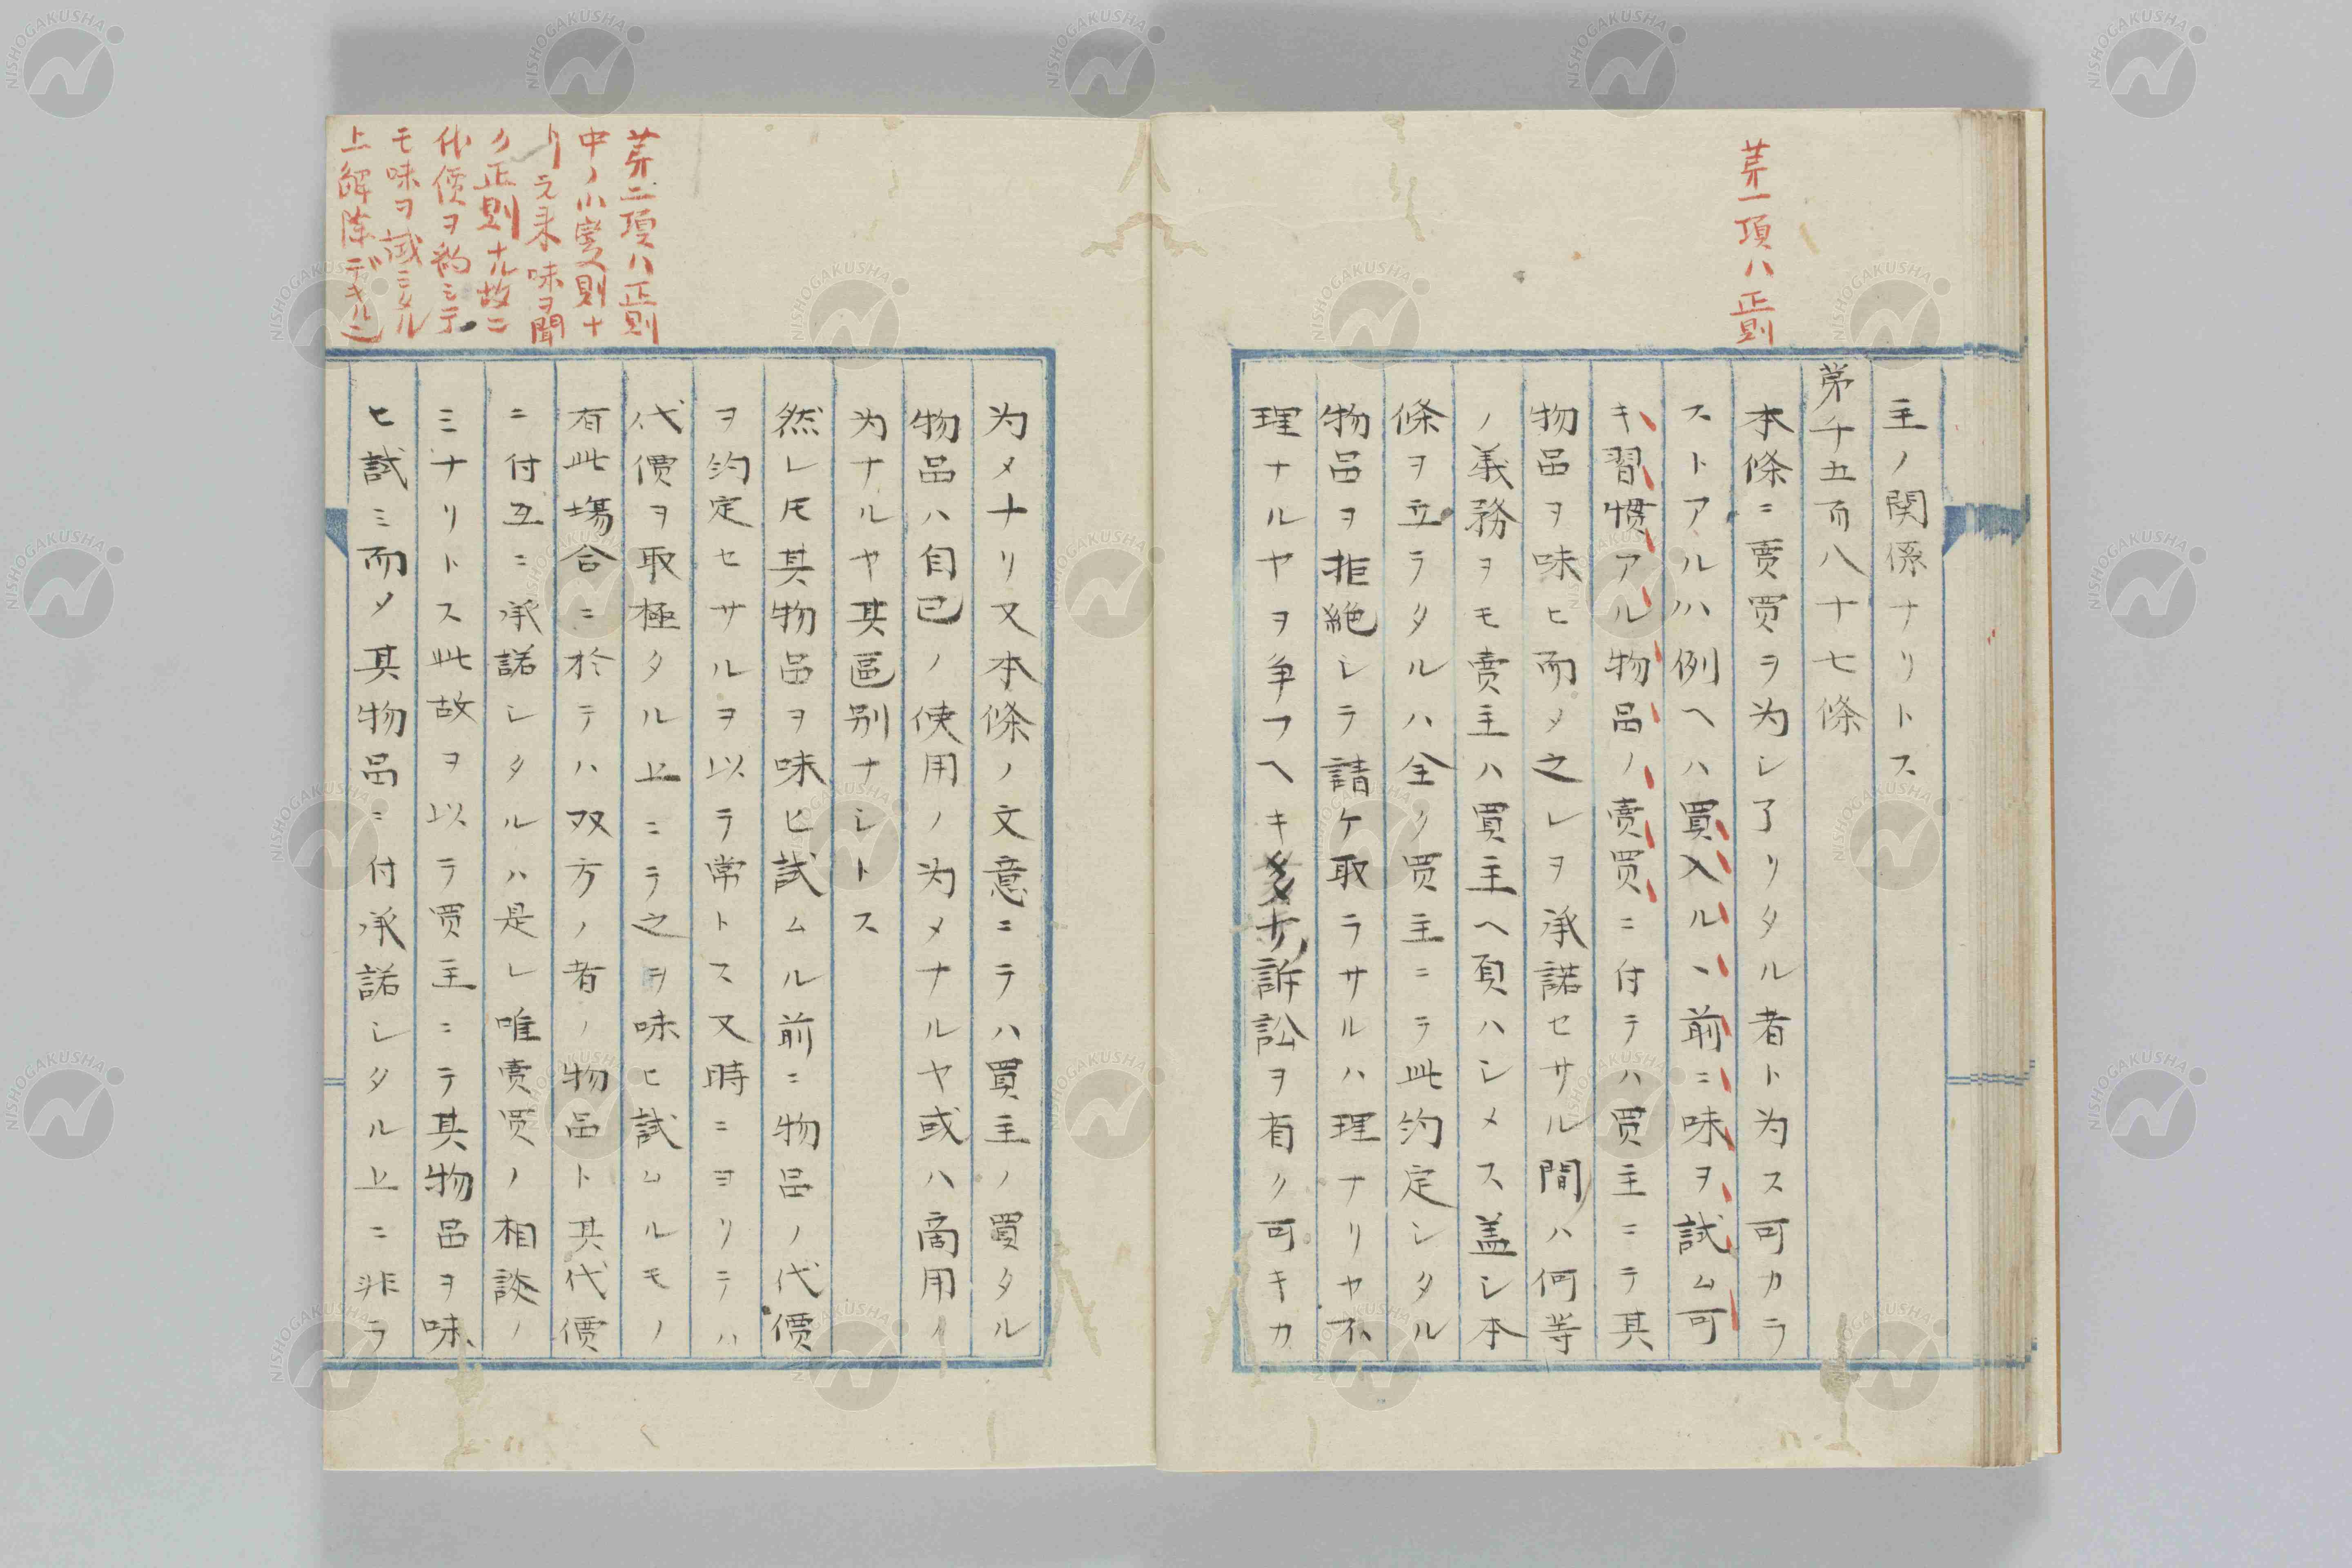 第一項ハ正則
主ノ関係ナリトス
第千五百八十七條
本條ニ賣買ヲ為シ了リタル者ト為ス可カラ
ストアルハ例ヘハ買入ルヽ前ニ味ヲ試ム可
キ習慣アル物品ノ賣買ニ付テハ買主ニテ其
物品ヲ味ヒ而メ之レヲ承諾セサル間ハ何等
ノ義務ヲモ賣主ハ買主ヘ負ハシメス盖シ本
條ヲ立ラタルハ全ク買主ニテ此約定シタル
物品ヲ拒絶シテ請ケ取ラサルハ理ナリヤ不
理ナルヤヲ争フヘキ多少訴訟ヲ有ク可キカ
第二項ハ正則
中ノ小変則ナ
リ元来味ヲ聞
ク正則ナル故ニ
代價ヲ約シテ
モ味ヲ試ミタル
上解除デキル
為メナリ又本條ノ文意ニテハ買主ノ買タル
物品ハ自己ノ使用ノ為メナルヤ或ハ商用ノ
為ナルヤ其區别ナシトス
然レ𪜈其物品ヲ味ヒ試ムル前ニ物品ノ代價
ヲ約定セサルヲ以テ常トス又時ニヨリテハ
代價ヲ取極タル上ニテ之ヲ味ヒ試ムルモノ
有此場合ニ於テハ双方ノ者ノ物品ト其代價
ニ付互ニ承諾シタルハ是レ唯賣買ノ相談ノ
ミナリトス此故ヲ以テ買主ニテ其物品ヲ味
ヒ試ミ而メ其物品ニ付承諾シタル上ニ非ラ
NISHOGAKUSHA